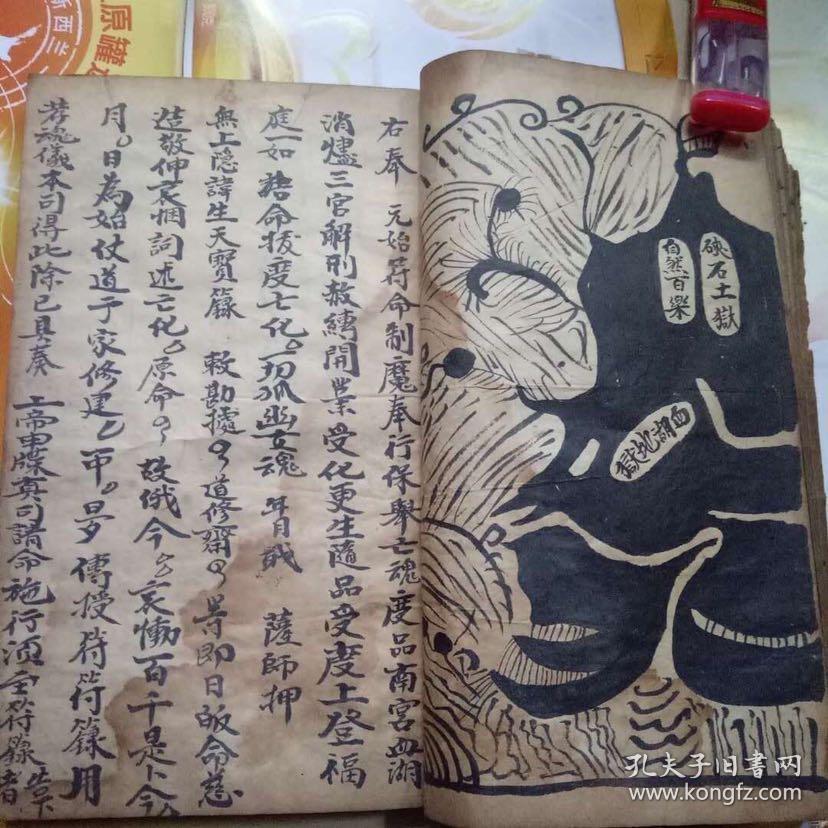 右奉 元始符命制魔奉行保舉亡魂度品南宮血湖
消爐三官解刑赦縛開業受化更生隨品受度上登福
庭一如誥命拔度亡化。一切孤幽等魂 年月 日 薩師押
無上隱諱生天寶籙 敕勘據 道修齋 等即日皈命慈
造敬伸哀悃詞述亡化。原命 故俄今 哀慟百千是卜今
月。日為始仗道于家修建 傳授符籙用
孝魂儀本司得此除已具奏 上帝申牒真司請命施行須至符籙者
破石土獄
自然百樂
西湖地獄
原罐
新西兰
孔夫子旧书网
www.kongfz.com